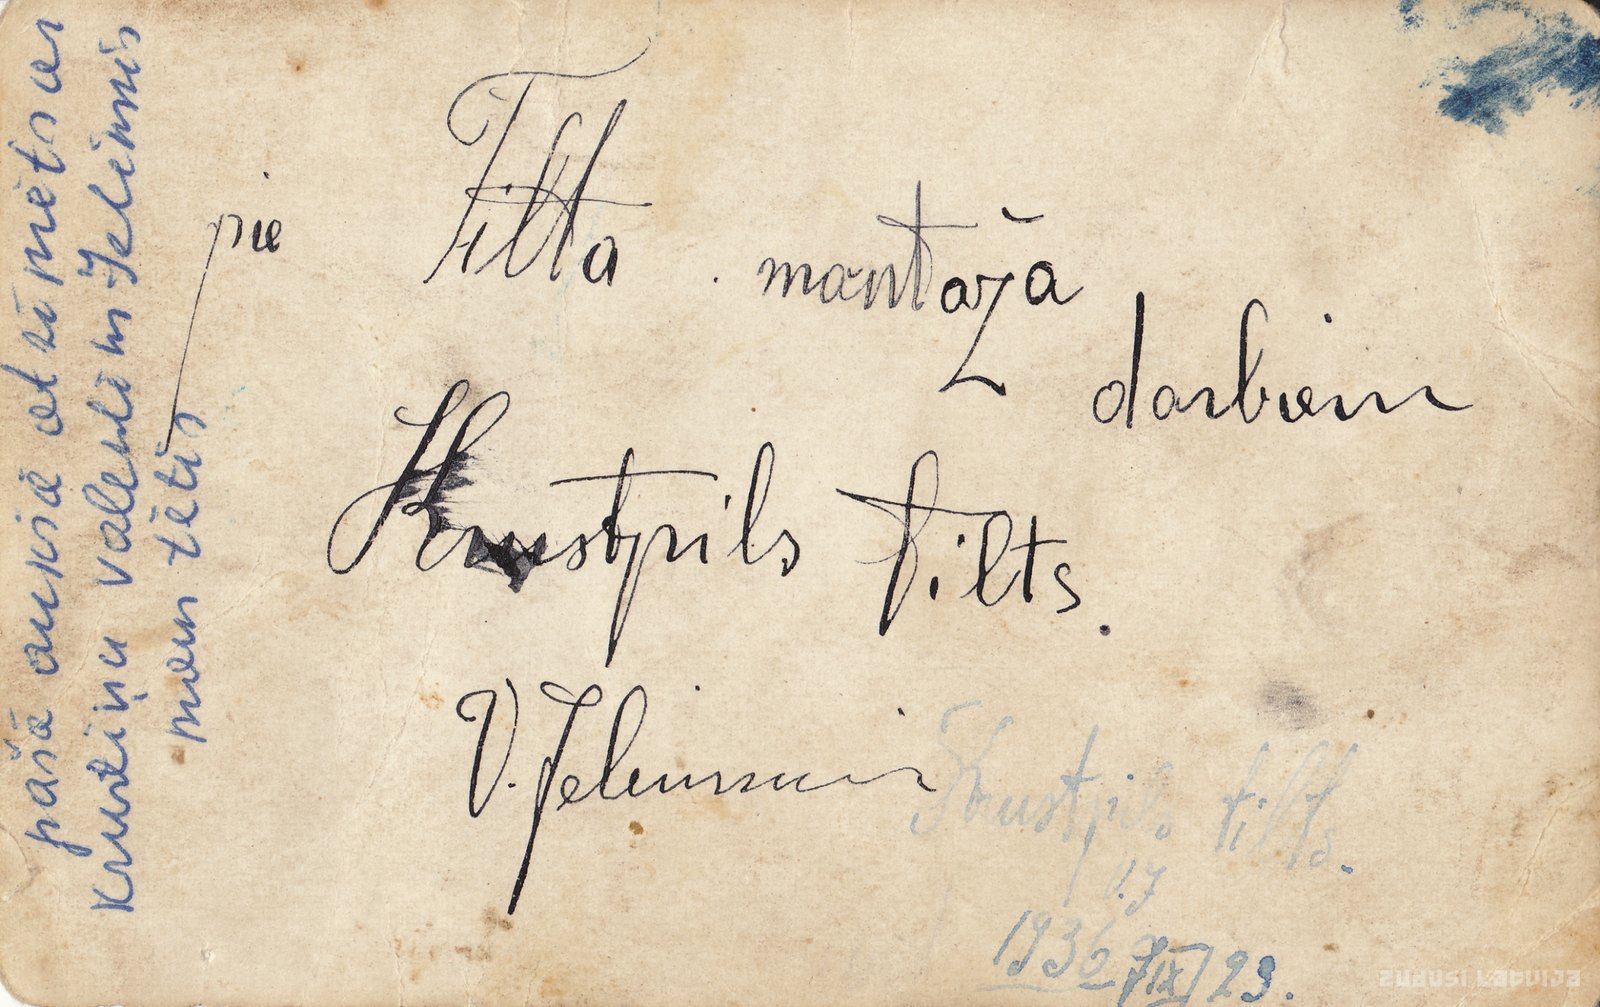 pašā augšā atzīmēts ar
krustiņu valentīns Jelinnis
man tētis
pie Tilta mantaža
darbiem
Krustpils tilts.
V. Jelinnis
Krustpils tilts.
V.J
1936 IX 23.
zudusi Latvija